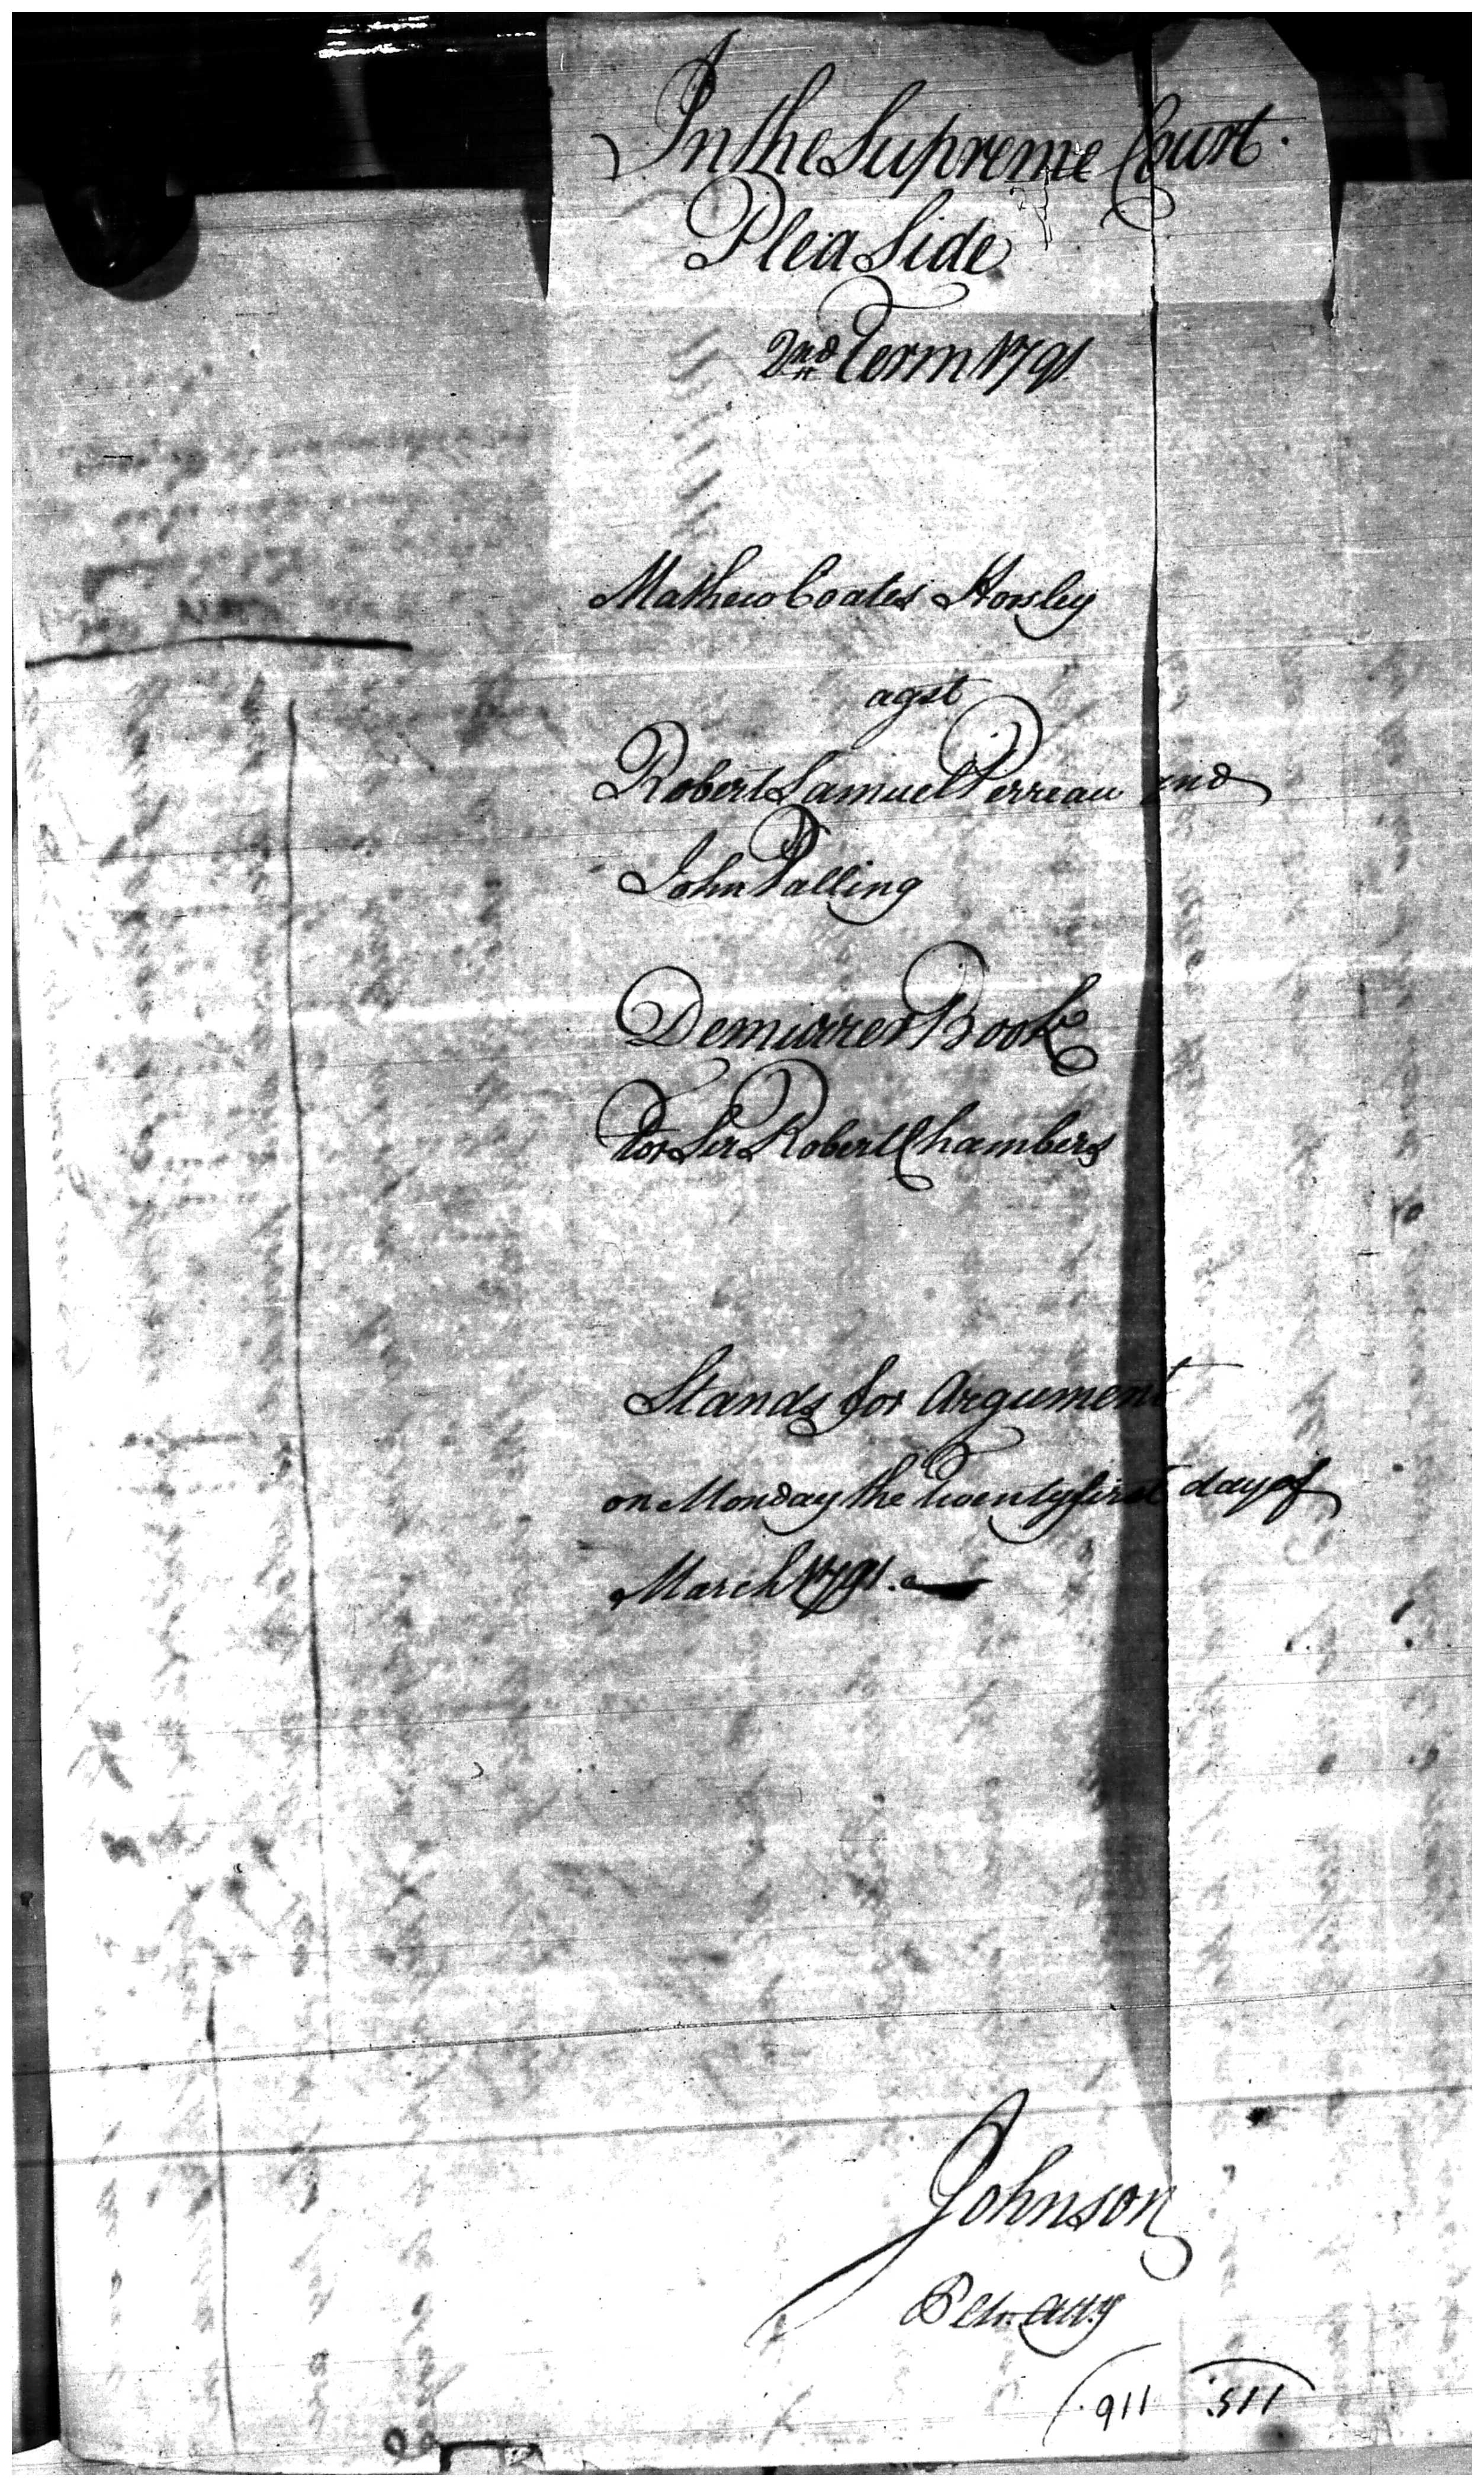 In the Supreme Court.
Plea Side
2nd Term 1791
Mathew Coates Horsley
agst
Robert Samuel Perreau and
John Palling
Demurrer Book
For Sir Robert Chambers
Stands for Argument
on Monday the Twenty first day of
March 1791.
Johnson
Atty
116 115